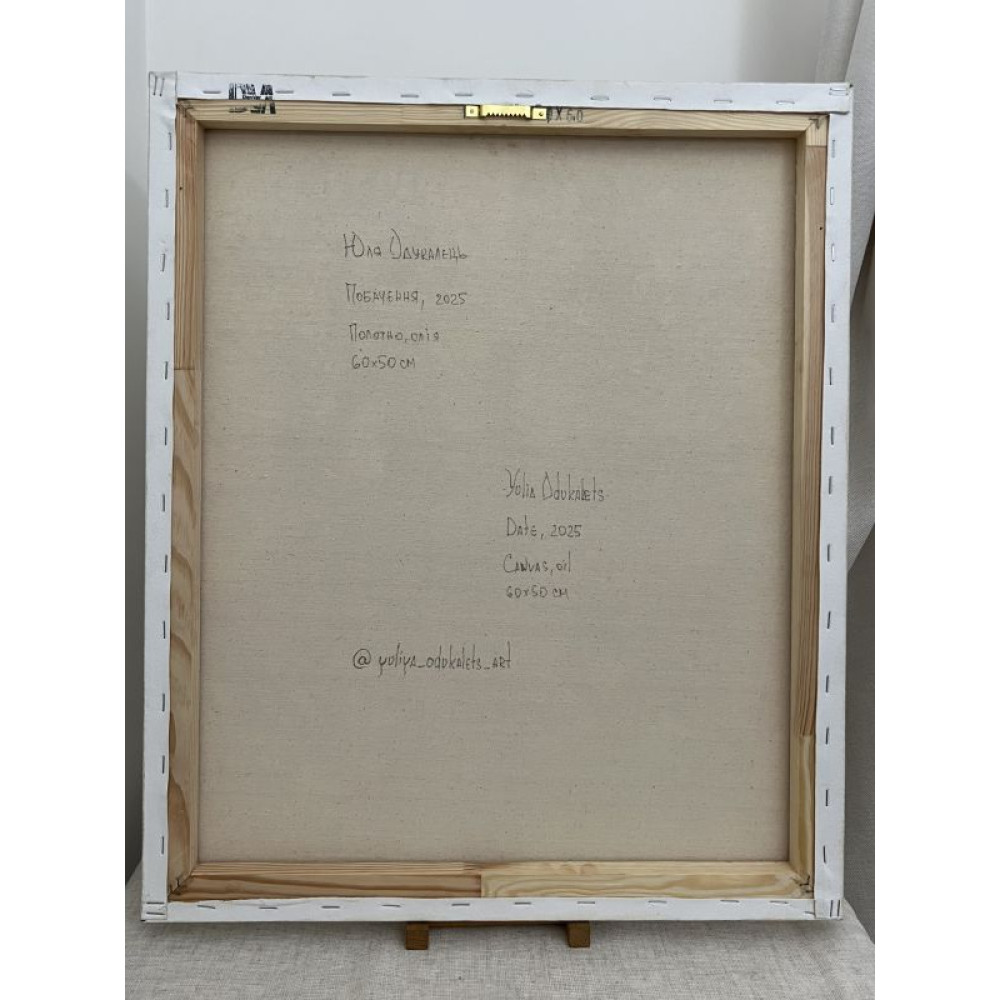 Юля Одукалець
Побачення, 2025
Полотно, олія
60x50 см
Yulia Odukalets
Date, 2025
Canvas, oil
60x50 см
@ yuliya_odukalets_art